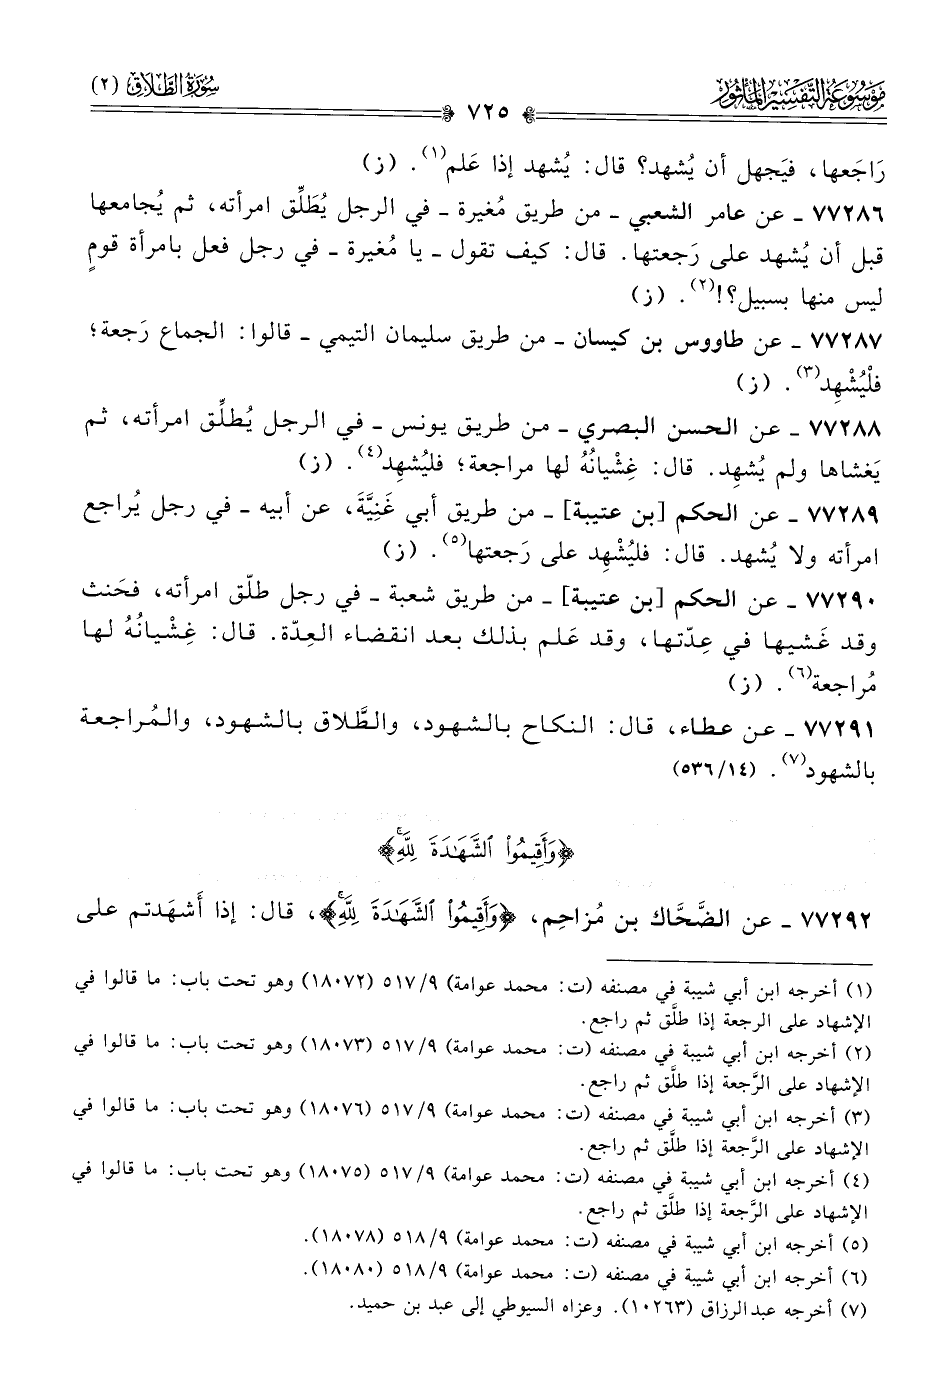 مَوْسُوعَة التَّفْسِير المَأثُور
سُورَةُ الطَّلَاقِ (٢)
٧٢٥
رَاجَعها، فيَجهل أن يُشهد؟ قال: يُشهد إذا عَلم(١). (ز)
٧٧٢٨٦ ـ عن عامر الشعبي ـ من طريق مُغيرة ـ في الرجل يُطَلِّق امرأته، ثم يُجامعها
قبل أن يُشهد على رَجعتها. قال: كيف تقول ـ يا مُغيرة ـ في رجل فعل بامرأة قومٍ
ليس منها بسبيل؟!(٢). (ز)
٧٧٢٨٧ ـ عن طاووس بن كيسان ـ من طريق سليمان التيمي ـ قالوا: الجماع رَجعة؛
فلْيُشْهِد(٣). (ز)
٧٧٢٨٨ ـ عن الحسن البصري ـ من طريق يونس ـ في الرجل يُطلِّق امرأته، ثم
يَغشاها ولم يُشهِد. قال: غِشْيانُهُ لها مراجعة؛ فليُشهِد(٤). (ز)
٧٧٢٨٩ ـ عن الحكم [بن عتيبة] ـ من طريق أبي غَنِيَّةَ، عن أبيه ـ في رجل يُراجع
امرأته ولا يُشهد. قال: فليُشْهِد على رَجعتها(٥). (ز)
٧٧٢٩٠ ـ عن الحكم [بن عتيبة] ـ من طريق شعبة ـ في رجل طلّق امرأته، فحَنث
وقد غَشيها في عِدّتها، وقد عَلم بذلك بعد انقضاء العِدّة. قال: غِشْيانُهُ لها
مُراجعة(٦). (ز)
٧٧٢٩١ ـ عن عطاء، قال: النكاح بالشهود، والطَّلاق بالشهود، والمُراجعة
بالشهود(٧). (٥٣٦/١٤)
﴿وَأَقِيمُوا۟ ٱلشَّهَـٰدَةَ لِلَّهِۚ﴾
٧٧٢٩٢ ـ عن الضَّحَّاك بن مُزاحِم، ﴿وَأَقِيمُوا۟ ٱلشَّهَـٰدَةَ لِلَّهِۚ﴾، قال: إذا أَشهَدتم على
(١) أخرجه ابن أبي شيبة في مصنفه (ت: محمد عوامة) ٥١٧/٩ (١٨٠٧٢) وهو تحت باب: ما قالوا في
الإشهاد على الرجعة إذا طلَّق ثم راجع.
(٢) أخرجه ابن أبي شيبة في مصنفه (ت: محمد عوامة) ٥١٧/٩ (١٨٠٧٣) وهو تحت باب: ما قالوا في
الإشهاد على الرَّجعة إذا طلَّق ثم راجع.
(٣) أخرجه ابن أبي شيبة في مصنفه (ت: محمد عوامة) ٥١٧/٩ (١٨٠٧٦) وهو تحت باب: ما قالوا في
الإشهاد على الرَّجعة إذا طلَّق ثم راجع.
(٤) أخرجه ابن أبي شيبة في مصنفه (ت: محمد عوامة) ٥١٧/٩ (١٨٠٧٥) وهو تحت باب: ما قالوا في
الإشهاد على الرَّجعة إذا طلَّق ثم راجع.
(٥) أخرجه ابن أبي شيبة في مصنفه (ت: محمد عوامة) ٥١٨/٩ (١٨٠٧٨).
(٦) أخرجه ابن أبي شيبة في مصنفه (ت: محمد عوامة) ٥١٨/٩ (١٨٠٨٠).
(٧) أخرجه عبدالرزاق (١٠٢٦٣). وعزاه السيوطي إلى عبد بن حميد.